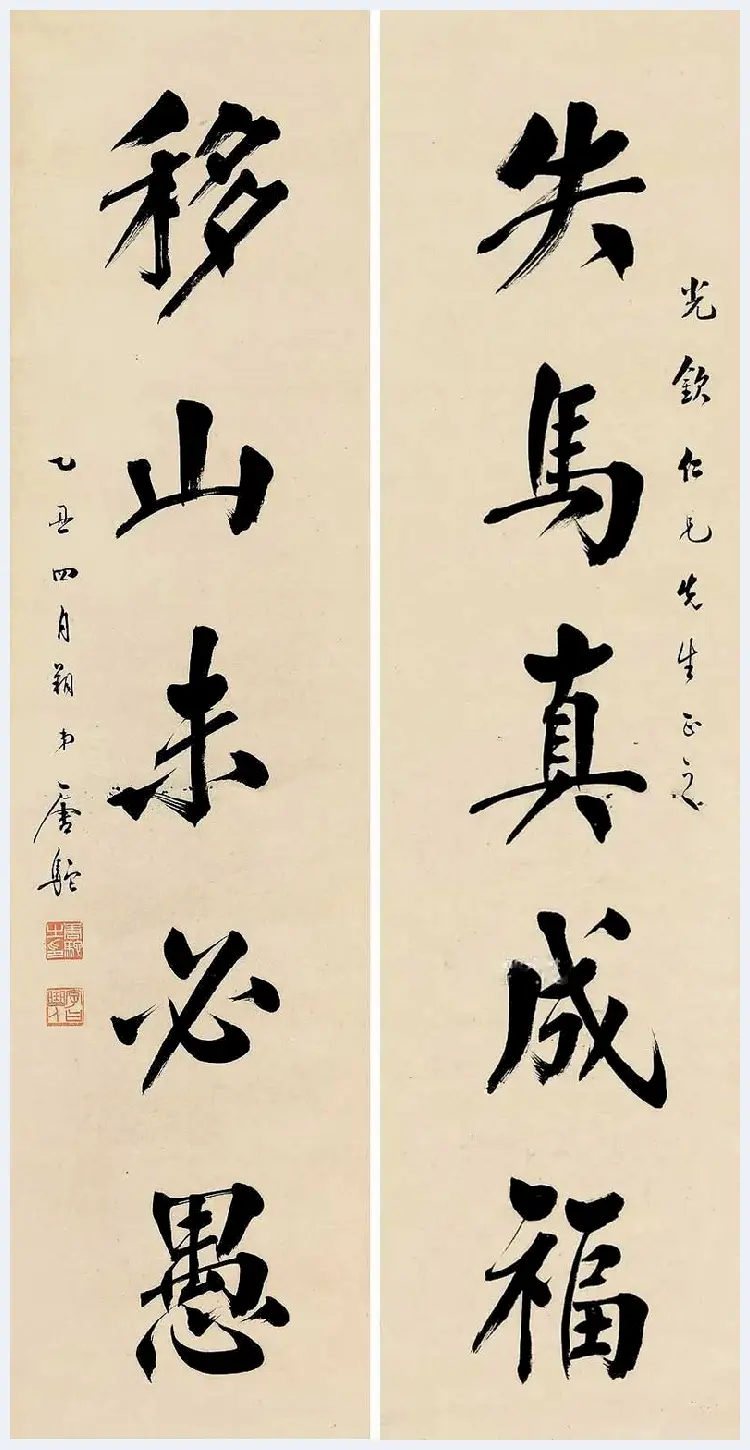 光欽仁兄先生正之
失馬真成福
移山未必愚
乙丑四月朔弟唐駝